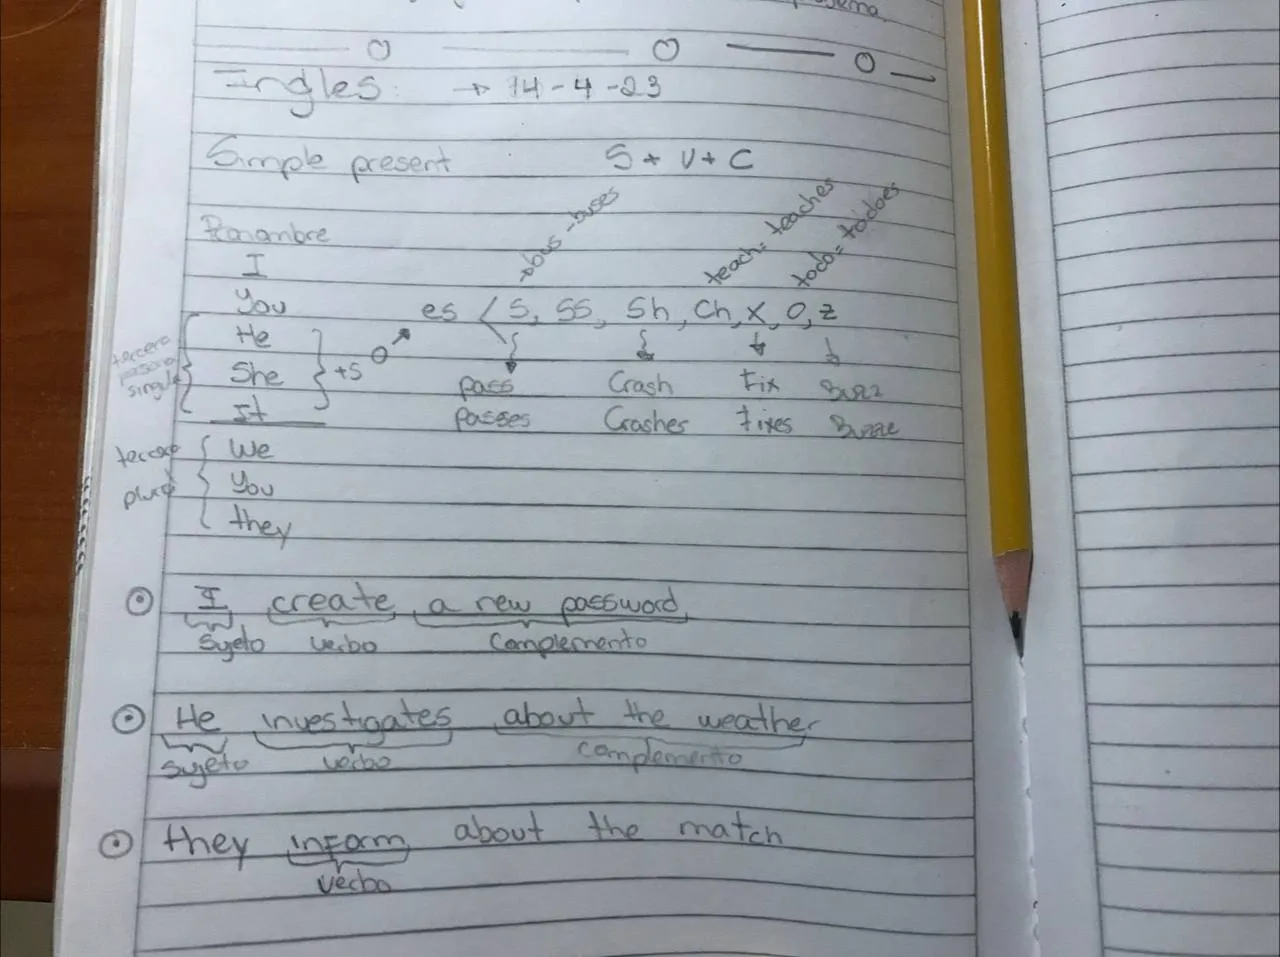 Ingles: → 14-4-23
Simple present S + V + C
→ bus - buses
teach = teaches
todo = todoes
Pronombre
I
You es < S, SS, Sh, Ch, X, O, Z
He
tercera persona
She } +s pass Crash Fix Buzz
It passes Crashes Fixes
We
You
they
I create a new password
sujeto verbo Complemento
He investigates about the weather
sujeto verbo complemento
they inform about the match
verbo